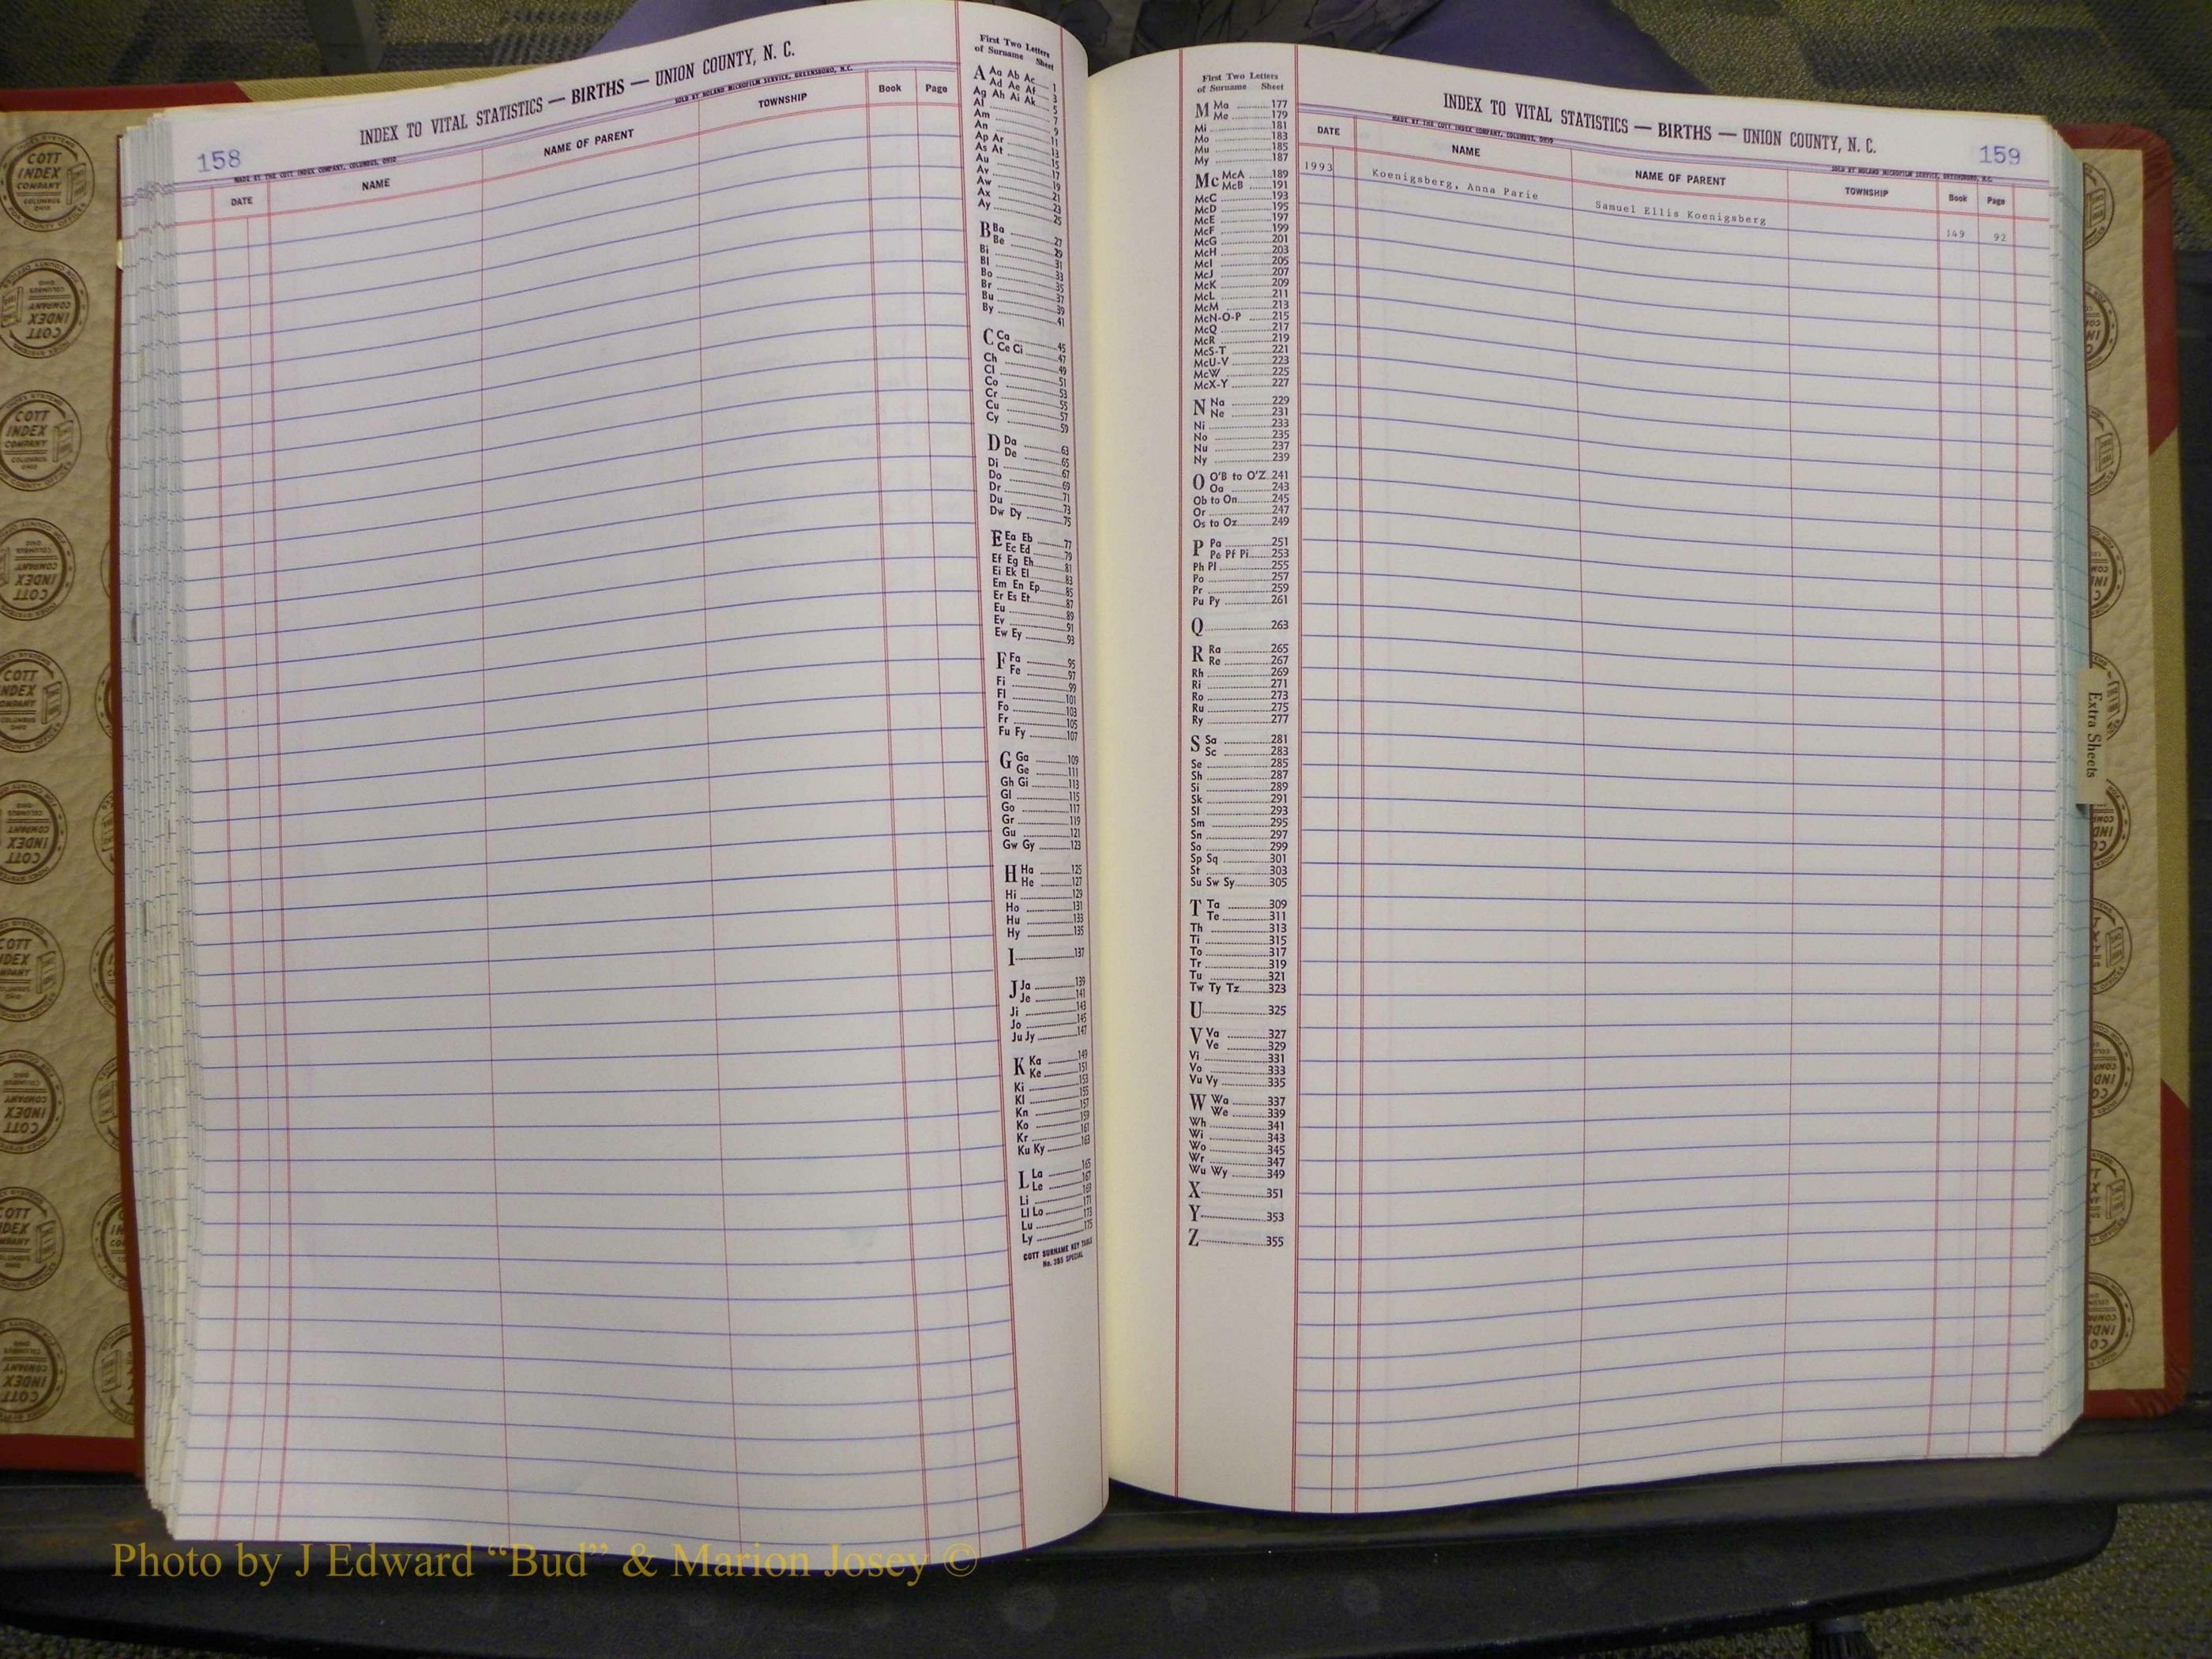 158
INDEX TO VITAL STATISTICS — BIRTHS — UNION COUNTY, N. C.
MADE BY THE COTT INDEX COMPANY, COLUMBUS, OHIO
SOLD BY NOLAND MICROFILM SERVICE, GREENSBORO, N.C.
DATE NAME NAME OF PARENT TOWNSHIP Book Page
First Two Letters
of Surname Sheet
A Aa Ab Ac 1
Ad Ae Af 3
Ag Ah Ai Ak 5
Al 7
Am 9
An 11
Ap Ar 13
As At 15
Au 17
Av 19
Aw 21
Ax 23
Ay 25
B Ba 27
Be 29
Bi 31
Bl 33
Bo 35
Br 37
Bu 39
By 41
C Ca 45
Ce Ci 47
Ch 49
Cl 51
Co 53
Cr 55
Cu 57
Cy 59
D Da 63
De 65
Di 67
Do 69
Dr 71
Du 73
Dw Dy 75
E Ea Eb 77
Ec Ed 79
Ef Eg Eh 81
Ei Ek El 83
Em En Ep 85
Er Es Et 87
Eu 89
Ev 91
Ew Ey 93
F Fa 95
Fe 97
Fi 99
Fl 101
Fo 103
Fr 105
Fu Fy 107
G Ga 109
Ge 111
Gh Gi 113
Gl 115
Go 117
Gr 119
Gu 121
Gw Gy 123
H Ha 125
He 127
Hi 129
Ho 131
Hu 133
Hy 135
I 137
J Ja 139
Je 141
Ji 143
Jo 145
Ju Jy 147
K Ka 149
Ke 151
Ki 153
Kl 155
Kn 157
Ko 159
Kr 161
Ku Ky 163
L La 165
Le 167
Li 169
Ll Lo 171
Lu 173
Ly 175
COTT SURNAME KEY TABLE
No. 385 SPECIAL
First Two Letters
of Surname Sheet
M Ma 177
Me 179
Mi 181
Mo 183
Mu 185
My 187
Mc McA 189
McB 191
McC 193
McD 195
McE 197
McF 199
McG 201
McH 203
McI 205
McJ 207
McK 209
McL 211
McM 213
McN-O-P 215
McQ 217
McR 219
McS-T 221
McU-V 223
McW 225
McX-Y 227
N Na 229
Ne 231
Ni 233
No 235
Nu 237
Ny 239
O O'B to O'Z 241
Oa 243
Ob to On 245
Or 247
Os to Oz 249
P Pa 251
Pe Pf Pi 253
Ph Pl 255
Po 257
Pr 259
Pu Py 261
Q 263
R Ra 265
Re 267
Rh 269
Ri 271
Ro 273
Ru 275
Ry 277
S Sa 281
Sc 283
Se 285
Sh 287
Si 289
Sk 291
Sl 293
Sm 295
Sn 297
So 299
Sp Sq 301
St 303
Su Sw Sy 305
T Ta 309
Te 311
Th 313
Ti 315
To 317
Tr 319
Tu 321
Tw Ty Tz 323
U 325
V Va 327
Ve 329
Vi 331
Vo 333
Vu Vy 335
W Wa 337
We 339
Wh 341
Wi 343
Wo 345
Wr 347
Wu Wy 349
X 351
Y 353
Z 355
INDEX TO VITAL STATISTICS — BIRTHS — UNION COUNTY, N. C.
159
MADE BY THE COTT INDEX COMPANY, COLUMBUS, OHIO
SOLD BY NOLAND MICROFILM SERVICE, GREENSBORO, N.C.
DATE NAME NAME OF PARENT TOWNSHIP Book Page
1993 Koenigsberg, Anna Parie Samuel Ellis Koenigsberg 149 92
Extra Sheets
COTT
INDEX
COMPANY
COLUMBUS
OHIO
Photo by J Edward “Bud” & Marion Josey ©